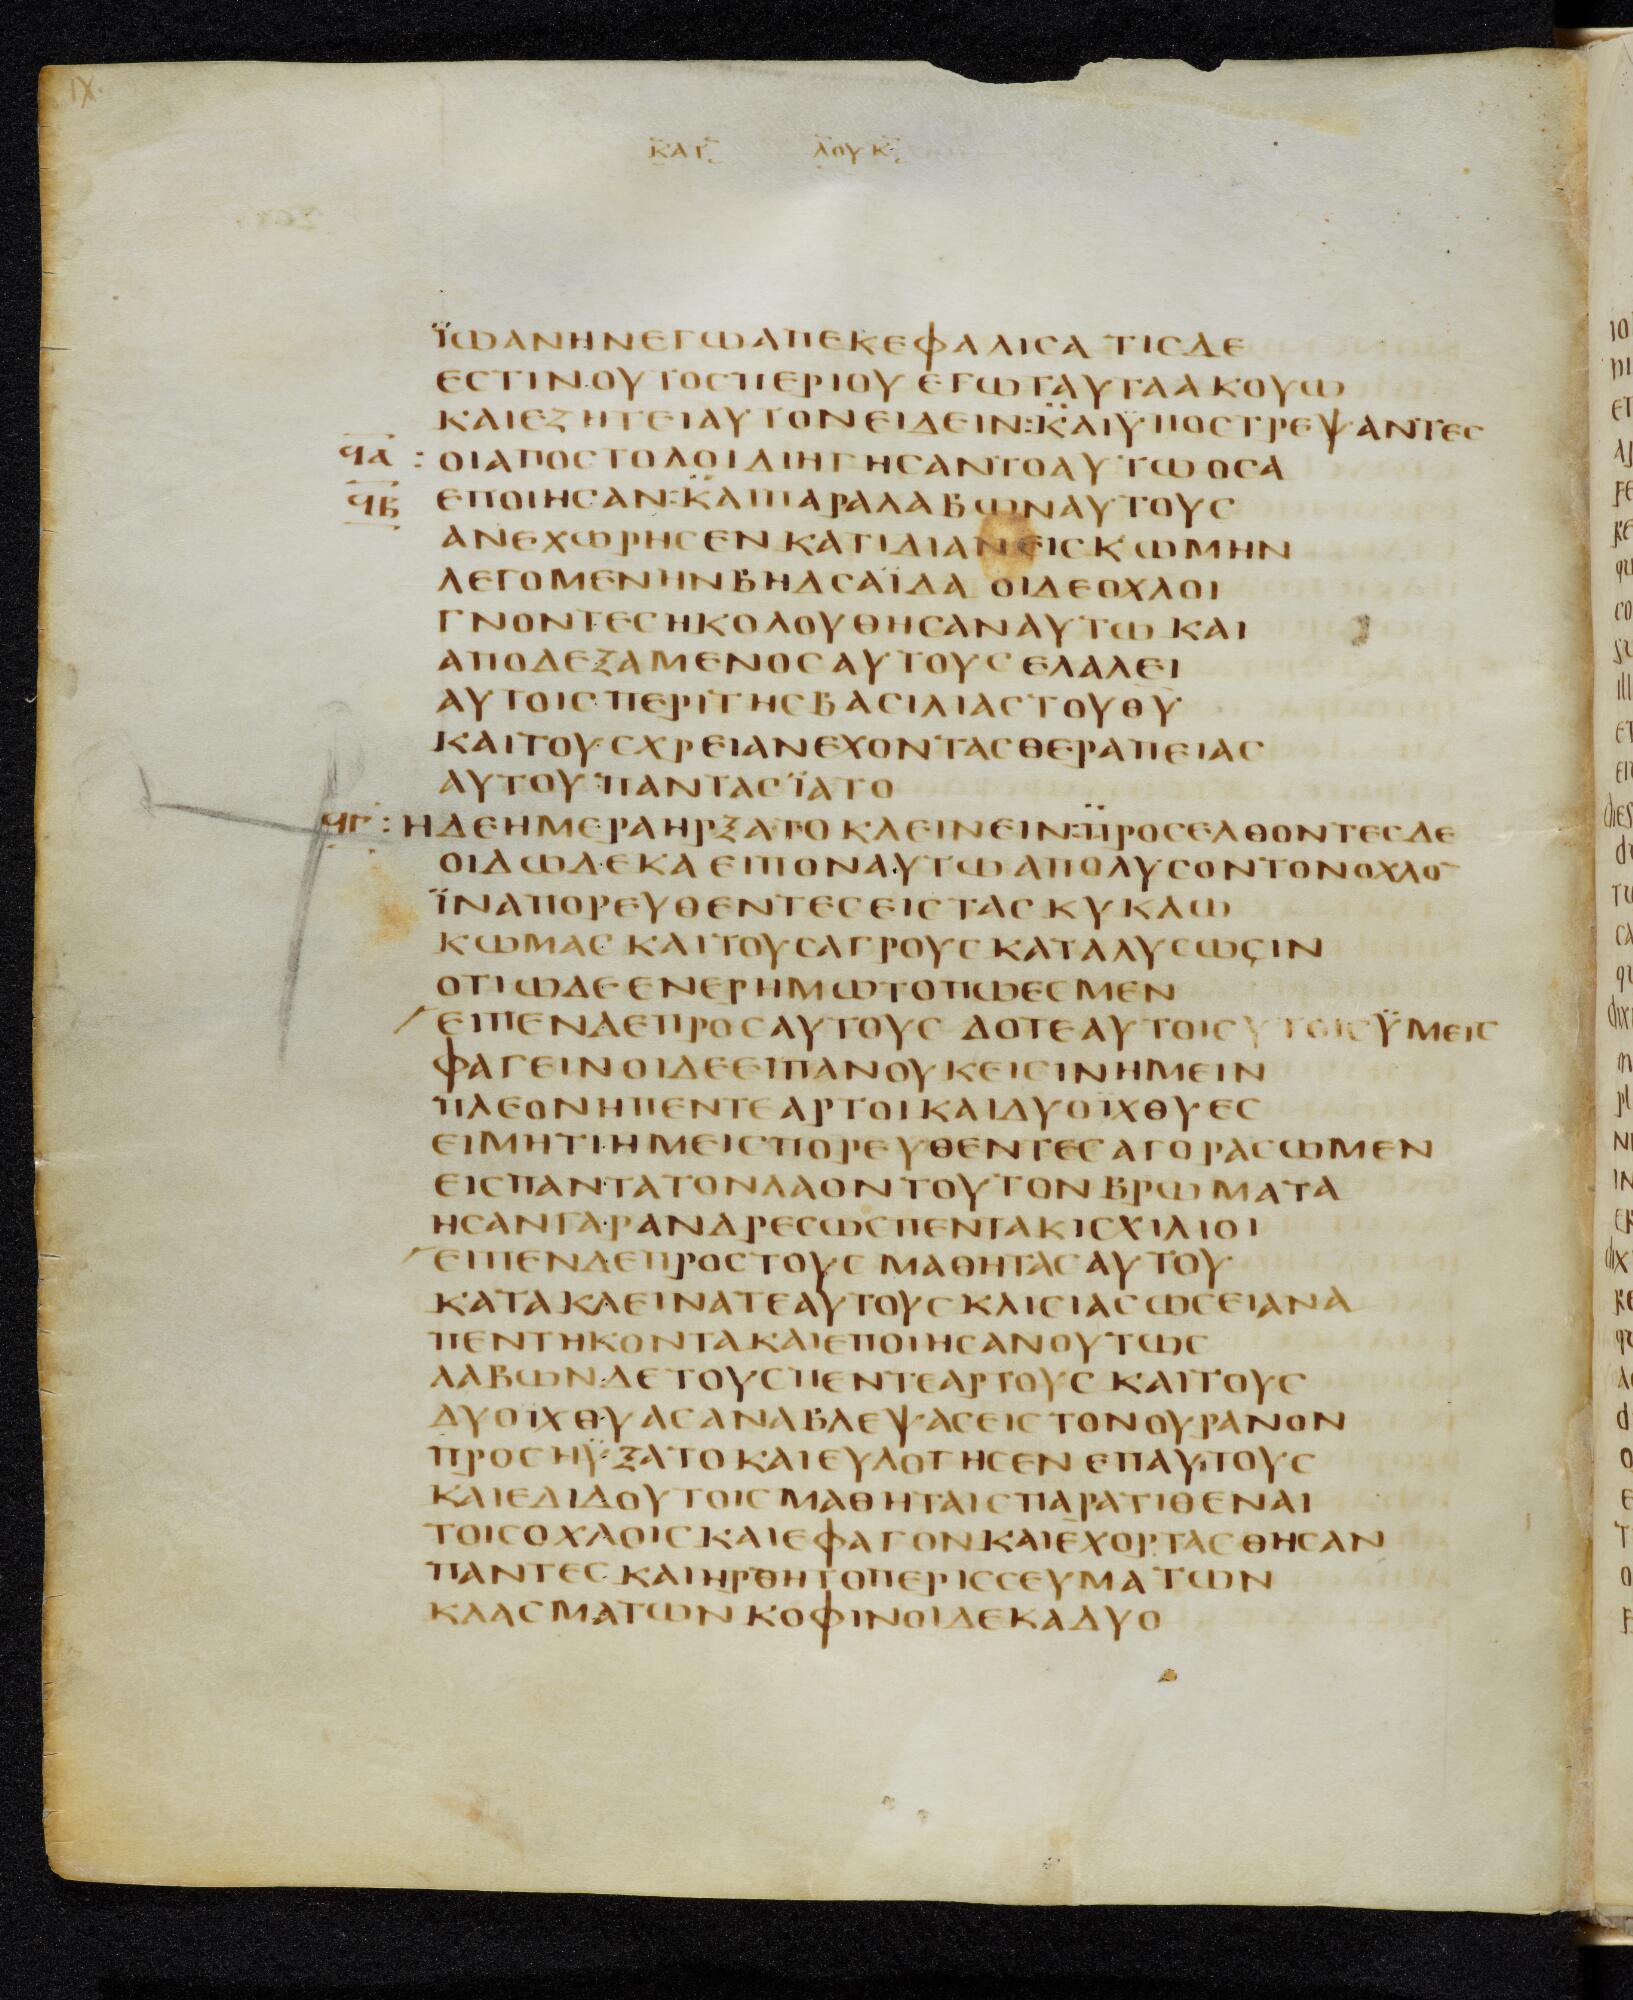 ΙΧ·
ΚΑΤ ΛΟΥΚ
ΪΩΑΝΗΝΕΓΩΑΠΕΚΕΦΑΛΙCΑ ΤΙCΔΕ
ΕCΤΙΝΟΥΤΟCΠΕΡΙΟΥ ΕΓΩΤΑΥΤΑΑΚΟΥΩ
ΚΑΙΕΖΗΤΕΙΑΥΤΟΝΕΙΔΕΙΝ:ΚΑΙΫΠΟCΤΡΕΨΑΝΤΕC
ϤΑ : ΟΙΑΠΟCΤΟΛΟΙΔΙΗΓΗCΑΝΤΟΑΥΤΩΟCΑ
ϤΒ ΕΠΟΙΗCΑΝ:ΚΑΙΠΑΡΑΛΑΒΩΝΑΥΤΟΥC
ΑΝΕΧΩΡΗCΕΝΚΑΤΙΔΙΑΝΕΙCΚΩΜΗΝ
ΛΕΓΟΜΕΝΗΝΒΗΔCΑΪΔΑ ΟΙΔΕΟΧΛΟΙ
ΓΝΟΝΤΕCΗΚΟΛΟΥΘΗCΑΝΑΥΤΩ ΚΑΙ
ΑΠΟΔΕΞΑΜΕΝΟCΑΥΤΟΥC ΕΛΑΛΕΙ
ΑΥΤΟΙCΠΕΡΙΤΗCΒΑCΙΛΙΑCΤΟΥΘΥ
ΚΑΙΤΟΥCΧΡΕΙΑΝΕΧΟΝΤΑCΘΕΡΑΠΕΙΑC
ΑΥΤΟΥΠΑΝΤΑCΪΑΤΟ
ϤΓ : ΗΔΕΗΜΕΡΑΗΡΞΑΤΟΚΛΕΙΝΕΙΝ:ΠΡΟCΕΛΘΟΝΤΕCΔΕ
ΟΙΔΩΔΕΚΑ ΕΙΠΟΝΑΥΤΩ ΑΠΟΛΥCΟΝΤΟΝΟΧΛΟ̅
ΪΝΑΠΟΡΕΥΘΕΝΤΕCΕΙCΤΑC ΚΥΚΛΩ
ΚΩΜΑC ΚΑΙΤΟΥCΑΓΡΟΥC ΚΑΤΑΛΥCΩCΙΝ
ΟΤΙΩΔΕΕΝΕΡΗΜΩΤΟΠΩΕCΜΕΝ
ΕΙΠΕΝΔΕΠΡΟCΑΥΤΟΥC ΔΟΤΕΑΥΤΟΙCΥΤΟΙCΫΜΕΙC
ΦΑΓΕΙΝΟΙΔΕΕΙΠΑΝΟΥΚΕΙCΙΝΗΜΕΙΝ
ΠΛΕΟΝΗΠΕΝΤΕΑΡΤΟΙΚΑΙΔΥΟΙΧΘΥΕC
ΕΙΜΗΤΙΗΜΕΙCΠΟΡΕΥΘΕΝΤΕCΑΓΟΡΑCΩΜΕΝ
ΕΙCΠΑΝΤΑΤΟΝΛΑΟΝΤΟΥΤΟΝΒΡΩΜΑΤΑ
ΗCΑΝΓΑΡΑΝΔΡΕCΩCΠΕΝΤΑΚΙCΧΙΛΙΟΙ
ΕΙΠΕΝΔΕΠΡΟCΤΟΥC ΜΑΘΗΤΑCΑΥΤΟΥ
ΚΑΤΑΚΛΕΙΝΑΤΕΑΥΤΟΥCΚΛΙCΙΑCΩCΕΙΑΝΑ
ΠΕΝΤΗΚΟΝΤΑΚΑΙΕΠΟΙΗCΑΝΟΥΤΩC
ΛΑΒΩΝΔΕΤΟΥCΠΕΝΤΕΑΡΤΟΥC ΚΑΙΤΟΥC
ΔΥΟΙΧΘΥΑCΑΝΑΒΛΕΨΑCΕΙCΤΟΝΟΥΡΑΝΟΝ
ΠΡΟCΗΫΞΑΤΟΚΑΙΕΥΛΟΓΗCΕΝ ΕΠΑΥΤΟΥC
ΚΑΙΕΔΙΔΟΥΤΟΙCΜΑΘΗΤΑΙCΠΑΡΑΤΙΘΕΝΑΙ
ΤΟΙCΟΧΛΟΙCΚΑΙΕΦΑΓΟΝΚΑΙΕΧΟΡΤΑCΘΗCΑΝ
ΠΑΝΤΕC ΚΑΙΗΡΘΗΤΟΠΕΡΙCCΕΥΜΑΤΩΝ
ΚΛΑCΜΑΤΩΝΚΟΦΙΝΟΙΔΕΚΑΔΥΟ